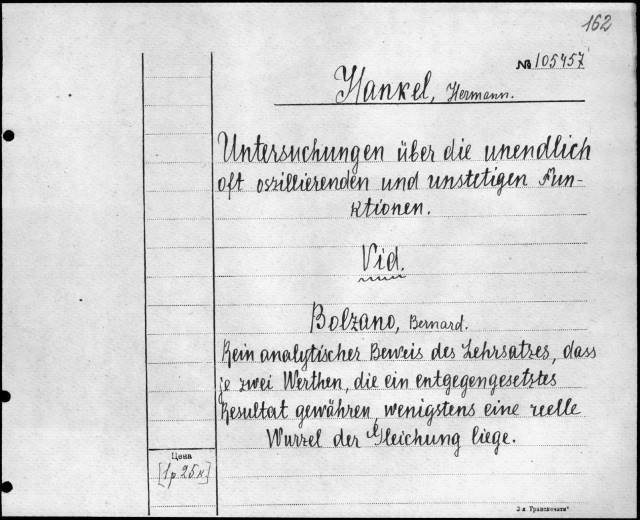 162
№ 105457
Hankel, Hermann.
Untersuchungen über die unendlich
oft oszillierenden und unstetigen Fun-
ktionen.
Vid.
Bolzano, Bernard.
Rein analytischer Beweis des Lehrsatzes, dass
je zwei Werthen, die ein entgegengesetztes
Resultat gewähren, wenigstens eine reelle
Wurzel der Gleichung liege.
Цена
[1 р 25 к]